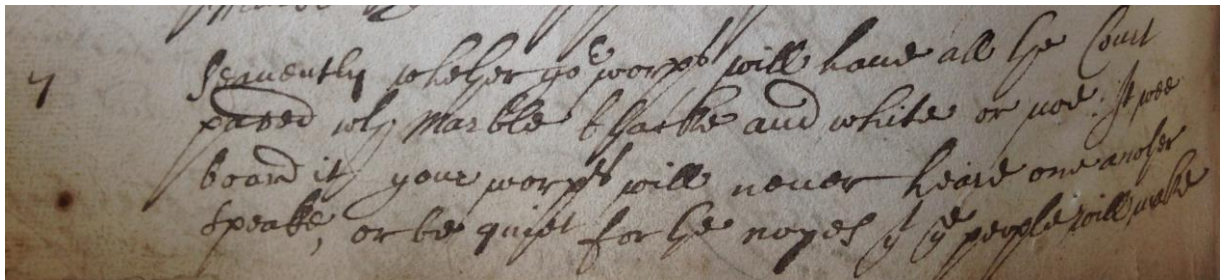 7 Seauenthly whether yor worpps will haue all the Court
paved wth Marble blacke and white or noe: If wee
board it your worpps will never heare one another
speake, or be quiet for the noyes yt ye people will make